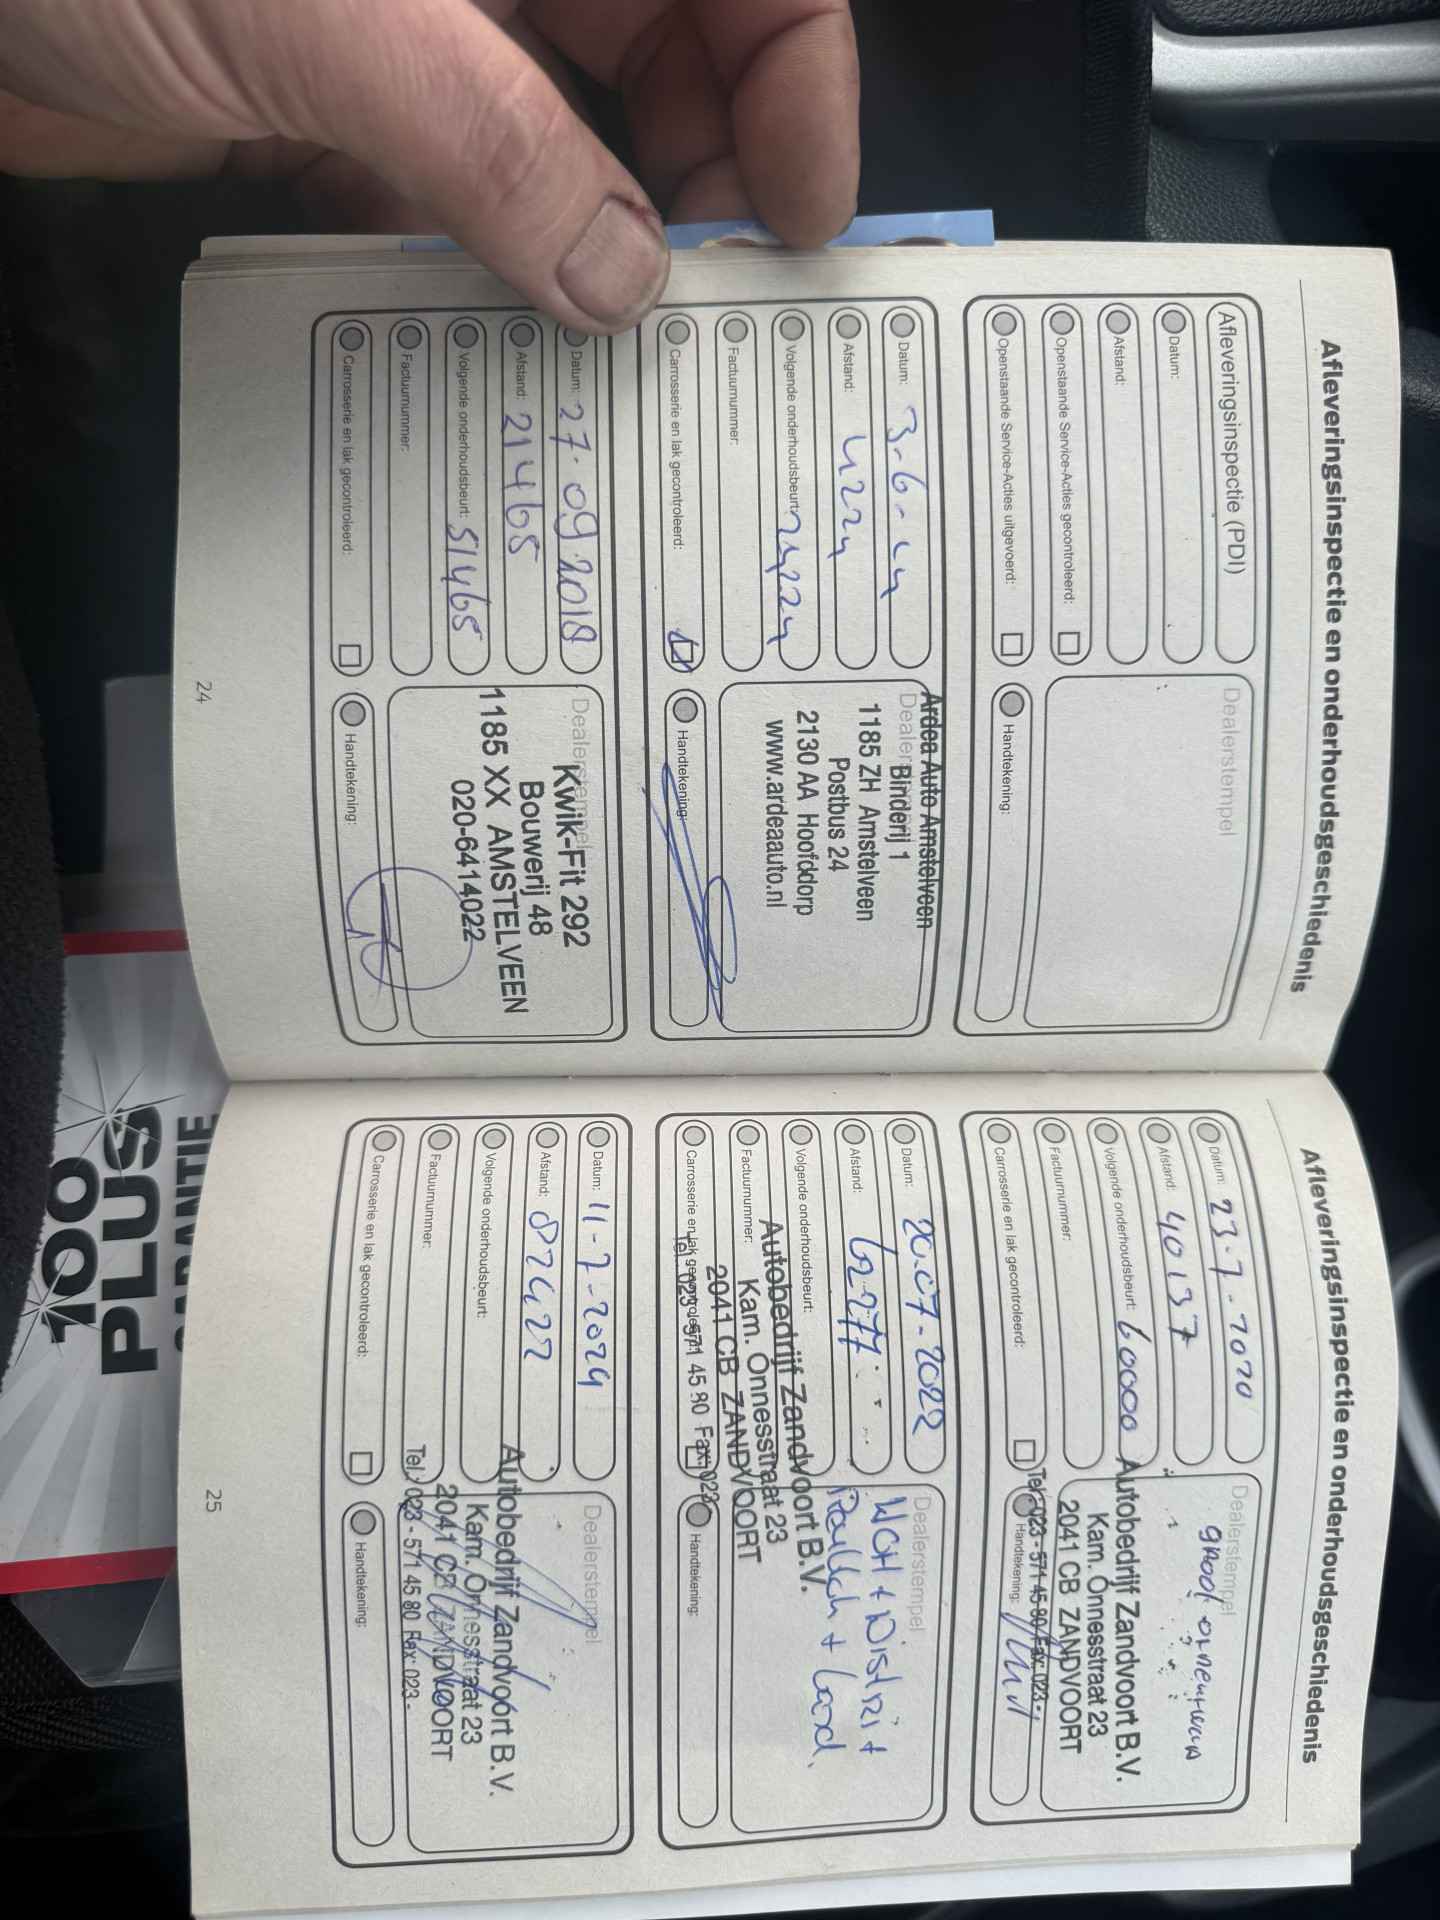 Afleveringsinspectie en onderhoudsgeschiedenis
Afleveringsinspectie (PDI)
Datum:
Afstand:
Openstaande Service-Acties gecontroleerd:
Openstaande Service-Acties uitgevoerd:
Dealerstempel
Handtekening:
Datum: 3-6-14
Afstand: 4224
Volgende onderhoudsbeurt: 24224
Factuurnummer:
Carrosserie en lak gecontroleerd:
Dealerstempel
Ardea Auto Amstelveen
Binderij 1
1185 ZH Amstelveen
Postbus 24
2130 AA Hoofddorp
www.ardeaauto.nl
Handtekening:
Datum: 27.09.2018
Afstand: 21465
Volgende onderhoudsbeurt: 51465
Factuurnummer:
Carrosserie en lak gecontroleerd:
Dealerstempel
Kwik-Fit 292
Bouwerij 48
1185 XX AMSTELVEEN
020-6414022
Handtekening:
24
Afleveringsinspectie en onderhoudsgeschiedenis
Datum: 23-7-2020
Afstand: 40137
Volgende onderhoudsbeurt: 60000
Factuurnummer:
Carrosserie en lak gecontroleerd:
Dealerstempel
groot
Autobedrijf Zandvoort B.V.
Kam. Onnesstraat 23
2041 CB ZANDVOORT
Tel.: 023 - 571 45 80 Fax: 023 -
Handtekening:
Datum: 20-07-2022
Afstand: 62277
Volgende onderhoudsbeurt:
Factuurnummer:
Carrosserie en lak gecontroleerd:
Dealerstempel
+ Distri +
+
Autobedrijf Zandvoort B.V.
Kam. Onnesstraat 23
2041 CB ZANDVOORT
Tel.: 023 - 571 45 80 Fax: 023
Handtekening:
Datum: 11-7-2024
Afstand: 82422
Volgende onderhoudsbeurt:
Factuurnummer:
Carrosserie en lak gecontroleerd:
Dealerstempel
Autobedrijf Zandvoort B.V.
Kam. Onnesstraat 23
2041 CB ZANDVOORT
Tel.: 023 - 571 45 80 Fax: 023 -
Handtekening:
25
100
PLUS